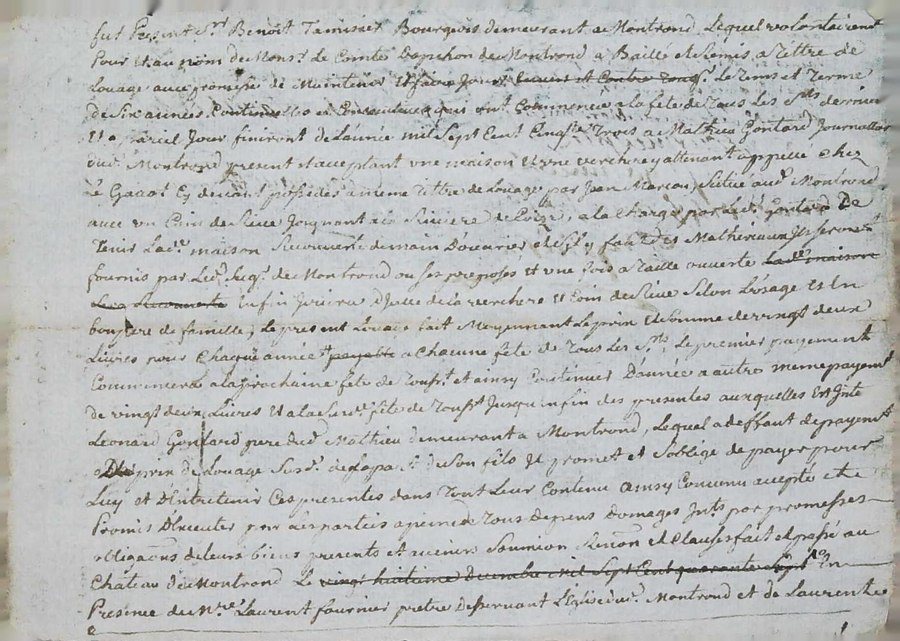 fut Present Sr Benoit Tamisier Bourgeois demeurant a Montrond Lequel volontairemt
Pour et au nom de Monsr. Le Comte Dapchon de Montrond a Baillé et Remis a tittre de
Louage avec promesse de Maintenir et faire Jouir envers et Contre tous Le tems et Terme
de Six années Continuelles et Consecutives qui ont Commencé a la fête de tous Les Sts dernier
et a pareil Jour finiront de Lannée mil Sept Cent Cinqte Trois a Mathieu Gontard Journallier
dud. Montrond present et acceptant une maison et une verchere y attenant appellée Chez
Gacot Cy devant possedés a meme tittre de Louage par Jean Marcou Située aud. Montrond
avec un Coin de Joignant a la Riviere de Loire, a la Charge par led. Gontard De
Tenir Lade. maison Recouverte de main D'ouvrier et s'il y faut des Matheriaux Ils seront
fournis par Led. Seigr. de Montrond ou ses preposés et une fois a taille ouverte Lade. maison
Enfin Jouira d'Icelle de la verchere et Coin de Selon L'usage et En
bon pere de famille, Le present Louage fait Moyennant Le prix et Somme de vingt deux
Livres pour Chaque année payable a Chacune fête de Tous Les Sts, Le premier payement
Commencera a la prochaine fête de Toussts. et ainsy Continuer D'année a autre meme payemt
de vingt deux Livres et a la Susde. fête de Toussts Jusqu'en fin des presentes auxquelles Est Inte
Léonard Gontard pere dud. Mathieu demeurant a Montrond, Lequel a deffaut de payemt
Du prix de Louage Susd. de la part de Son fils Il promet et S'oblige de payer pour
Luy et D'Entretenir Ces presentes dans Tout Leur Contenu Ainsy Convenu accepté et
Promis D'Executer par Les parties a peine de Tous depens Domages Ints par promesses
obligaons de leurs biens presents et avenirs Soumion, Renon et Clauses fait et passé au
Château de Montrond Le vingt huitieme Decembre mil Sept Cent quarante Sept En
Presence de Mre. Laurent fournier pretre Desservant L'Eglise dud. Montrond et de Laurent